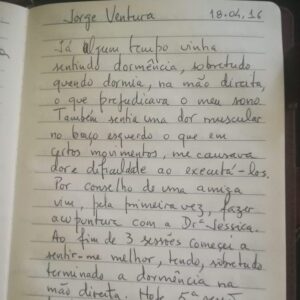 Jorge Ventura 18.04.16
Já algum tempo vinha
sentindo dormência, sobretudo
quendo dormia, na mão direita,
o que prejudicava o meu sono.
Também senha uma dor muscular
no braço esquerdo o que em
certos movimentos, me causava
dor e dificuldade ao executá-los.
Por conselho de uma amiga
vim, pela primeira vez, fazer
acupuntura com a Drª Jessica.
Ao fim de 3 sessões comecei a
sentir-me melhor, tendo, sobretudo
terminado a dormência na
mão direita. Hoje, 5ª